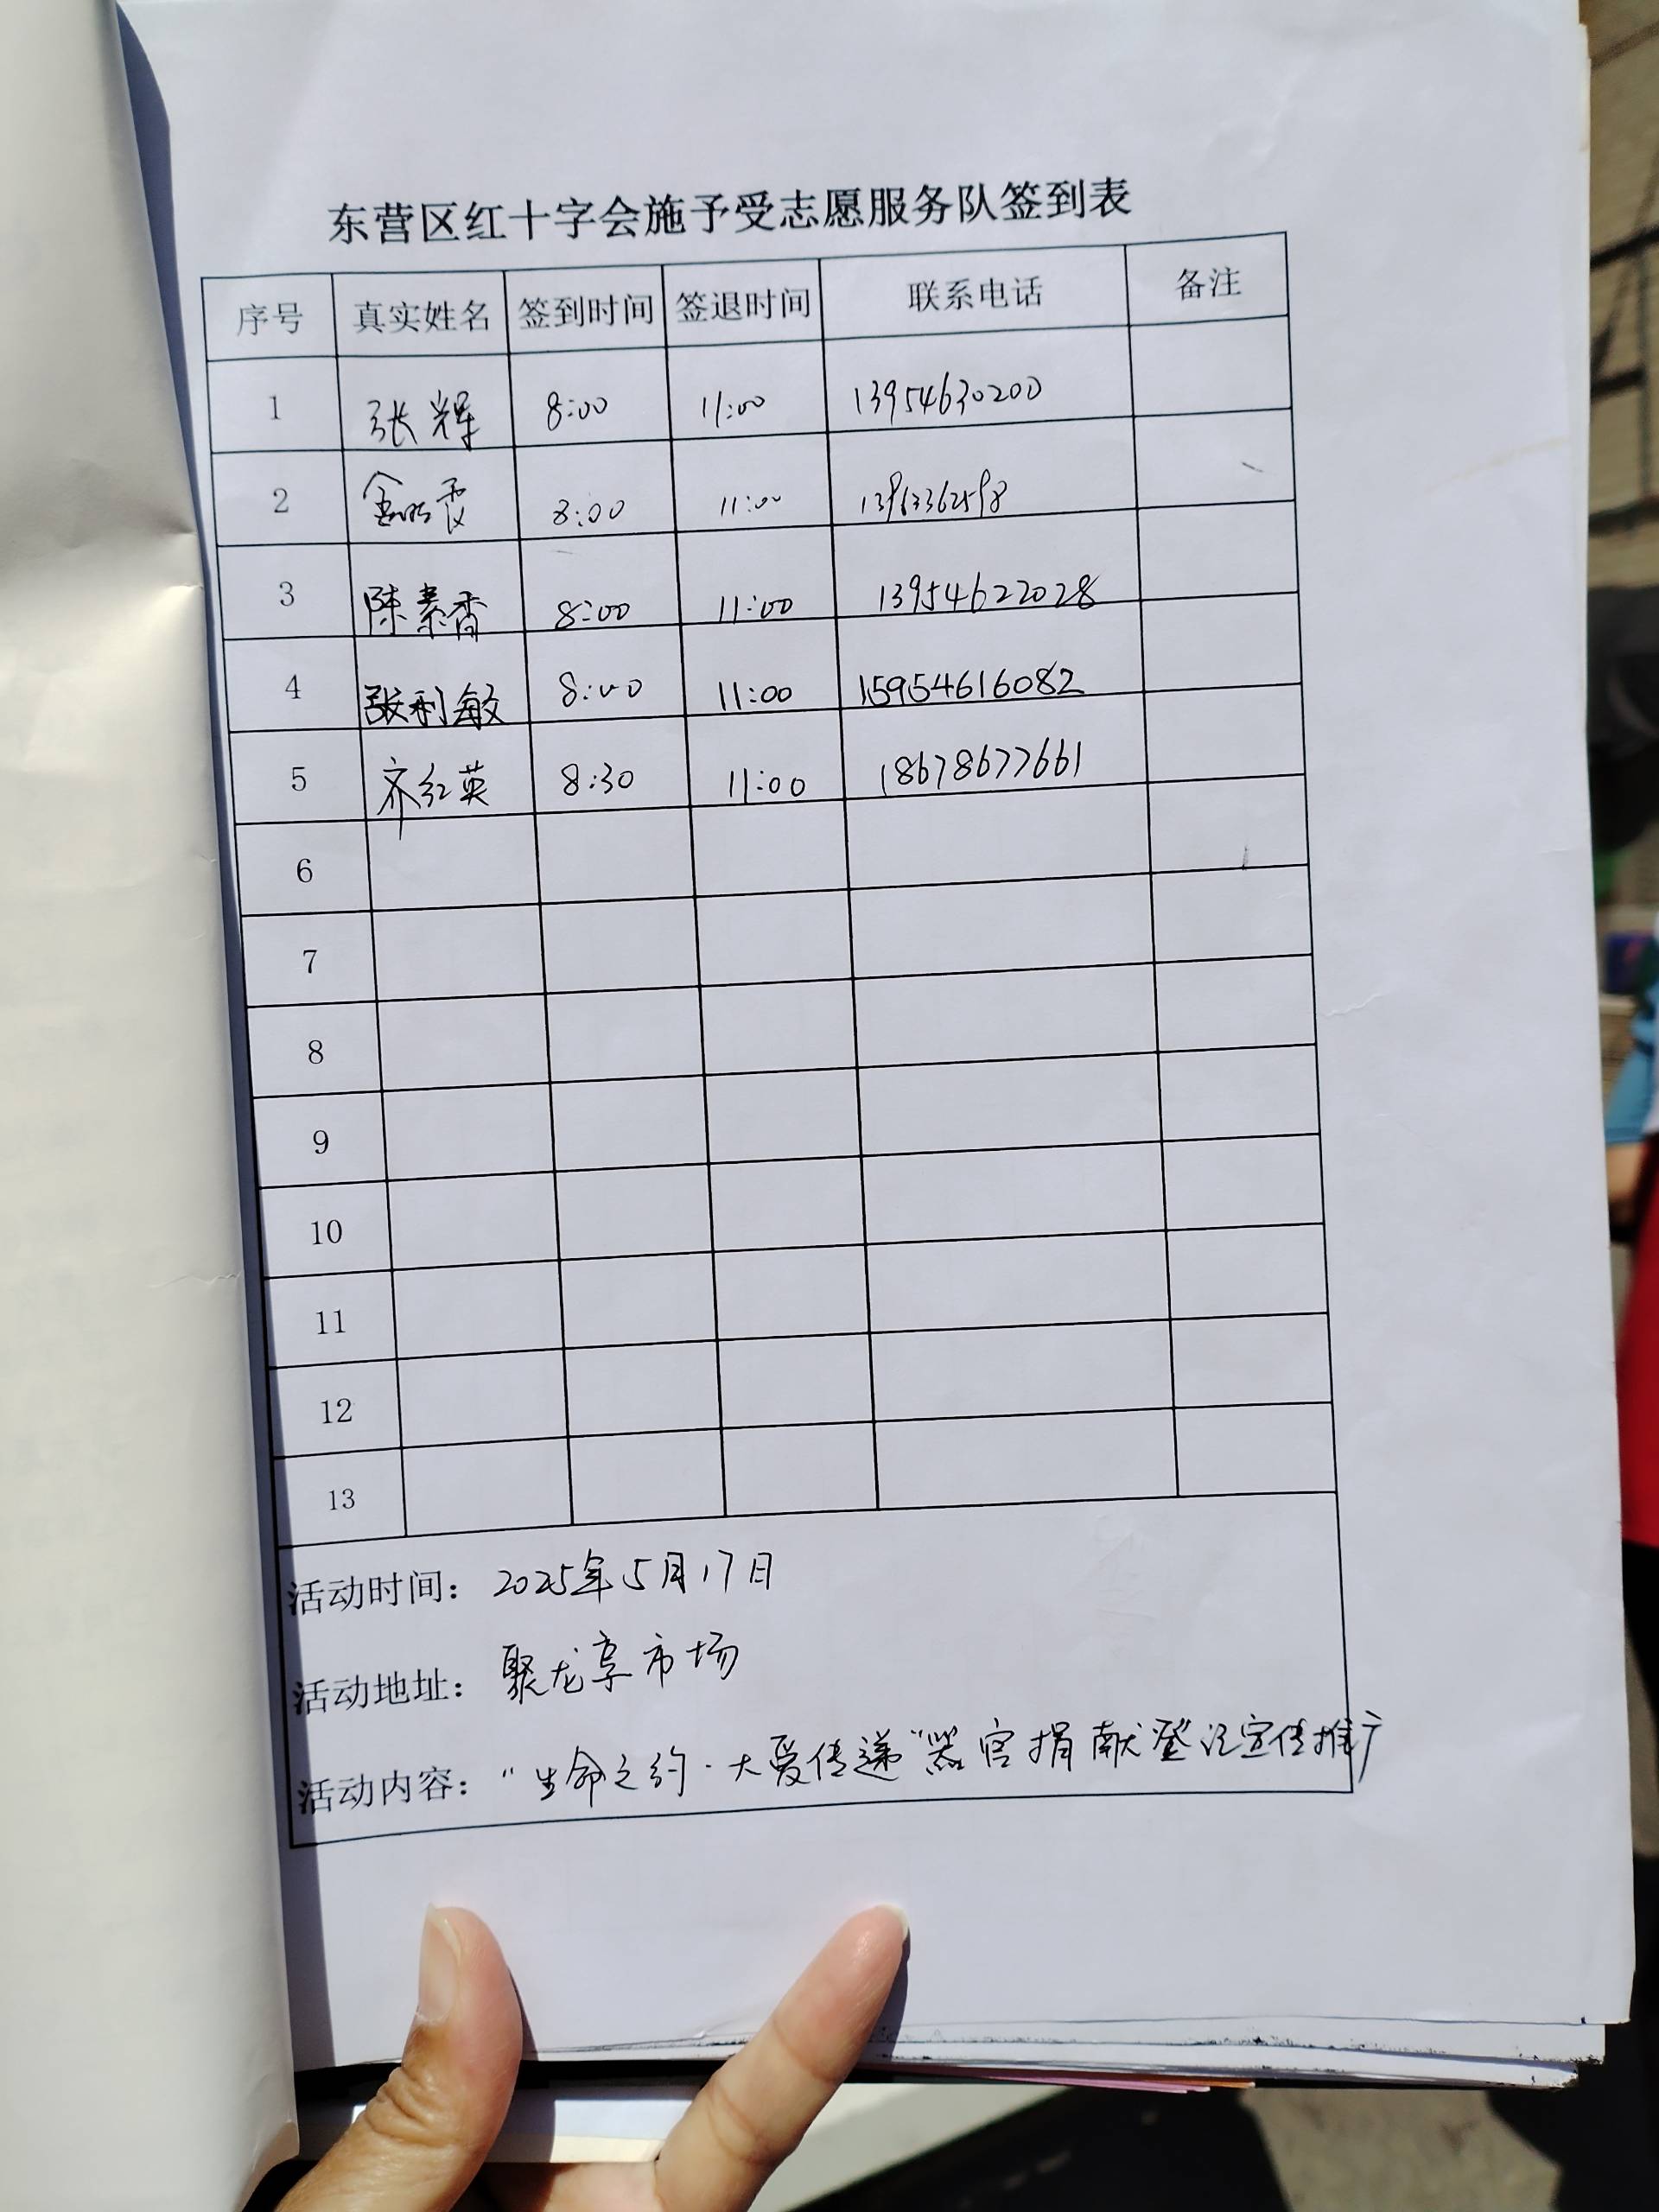 东营区红十字会施予受志愿服务队签到表
序号 真实姓名 签到时间 签退时间 联系电话 备注
1 张辉 8:00 11:00 13954630200
2 8:00 11:00
3 陈素香 8:00 11:00 13954622028
4 张利敏 8:00 11:00 15954616082
5 齐红英 8:30 11:00 18678677661
6
7
8
9
10
11
12
13
活动时间: 2025年5月17日
活动地址: 聚龙享市场
活动内容: “生命之约·大爱传递”器官捐献登记宣传推广